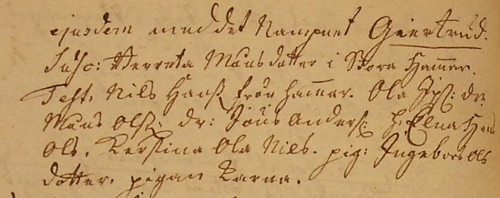 ejusdem med det Nampnet Giertrud.
Susc: Måns dotter i Stora Hammar.
Test. Nils Hanß från hammar. Ola Jps: dr:
Måns Olß, dr: Jöns Anderß, h. Elna
Ols. Kerstina Ola Nils. pig: Ingebor Ols
dotter. pigan Karna.